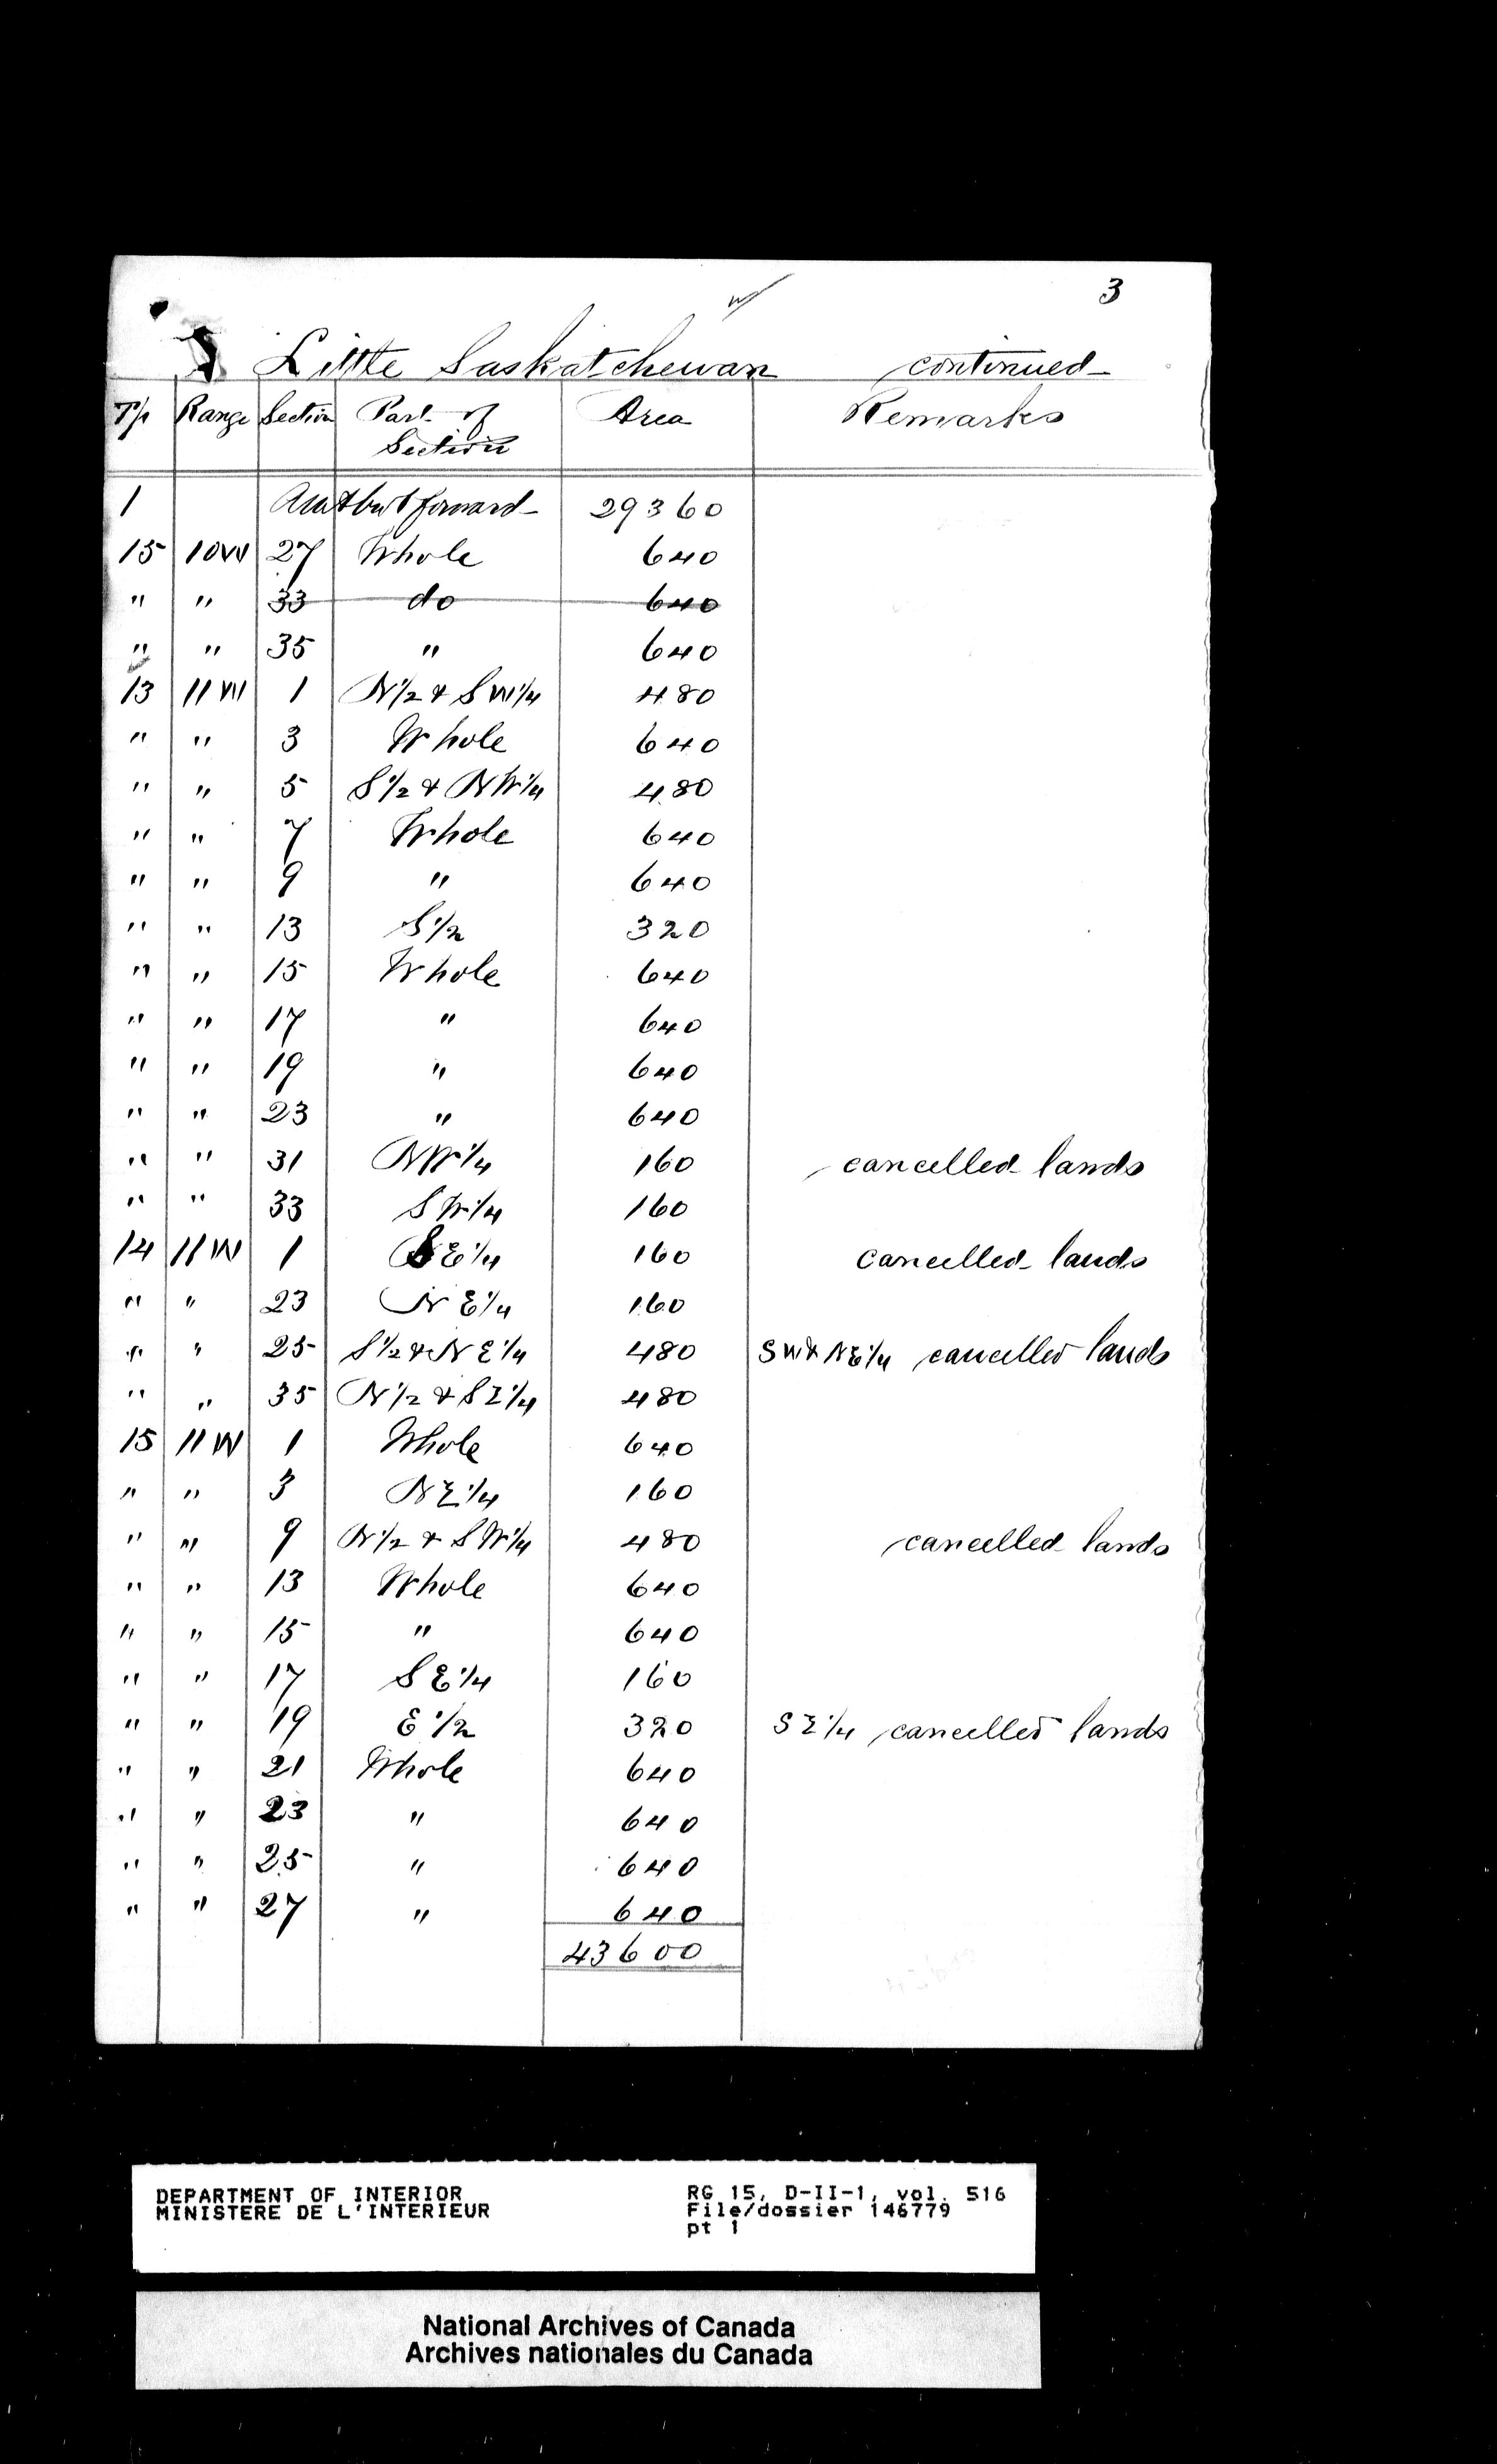 3
Little Saskatchewan continued
Tp Range Section Part of Section Area Remarks
1 Amt bt forward 29360
15 10W 27 Whole 640
" " 33 do 640
" " 35 " 640
13 11W 1 N½ & SW¼ 480
" " 3 Whole 640
" " 5 S½ & NW¼ 480
" " 7 Whole 640
" " 9 " 640
" " 13 S½ 320
" " 15 Whole 640
" " 17 " 640
" " 19 " 640
" " 23 " 640
" " 31 NW¼ 160 cancelled lands
" " 33 SW¼ 160
14 11W 1 SE¼ 160 cancelled lands
" " 23 NE¼ 160
" " 25 S½ & NE¼ 480 SW & NE¼ cancelled lands
" " 35 N½ & SE¼ 480
15 11W 1 Whole 640
" " 3 NE¼ 160
" " 9 N½ & SW¼ 480 cancelled lands
" " 13 Whole 640
" " 15 " 640
" " 17 SE¼ 160
" " 19 E½ 320 SE¼ cancelled lands
" " 21 Whole 640
" " 23 " 640
" " 25 " 640
" " 27 " 640
43600
DEPARTMENT OF INTERIOR
MINISTERE DE L'INTERIEUR
RG 15, D-II-1, vol. 516
File/dossier 146779
pt 1
National Archives of Canada
Archives nationales du Canada